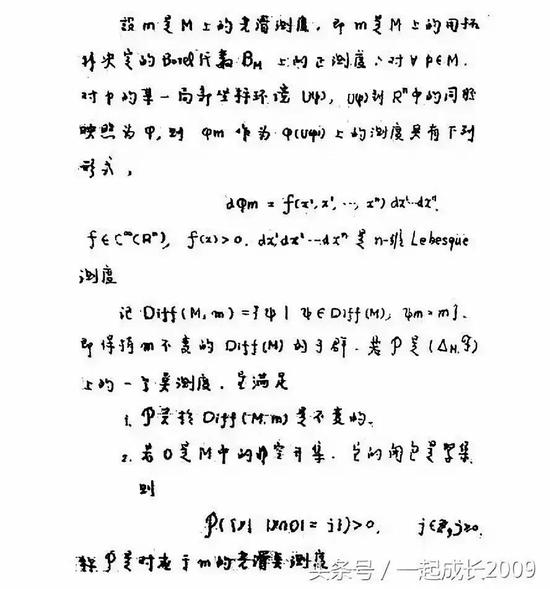 設 m 是 M 上的光滑测度，即 m 是 M 上的由拓
扑决定的 Borel 代数 B_M 上的正测度，对 ∀ p∈M.
对 p 的某一局部坐标环境 U(p)，U(p) 到 R^n 中的同胚
映照为 φ，则 φm 作为 φ(U(p)) 上的测度具有下列
形式，
dφm = f(x¹, x², ···, x^n) dx¹···dx^n.
f∈C^∞(R^n), f(x)>0. dx¹dx²···dx^n 是 n-维 Lebesque
测度
记 Diff(M, m) = {ψ | ψ∈Diff(M), ψm=m}.
即保持 m 不变的 Diff(M) 的子群. 若 P 是 (Δ_M,
上的一个 测度. 它满足
1. P 关于 Diff(M, m) 是不变的.
2. 若 O 是 M 中的非空开集. 它的闭包是紧集
则
P({γ | |γ∩O| = j})>0, j∈Z, j≥0.
称 P 是对应于 m 的光滑 测度
头条号 / 一起成长2009